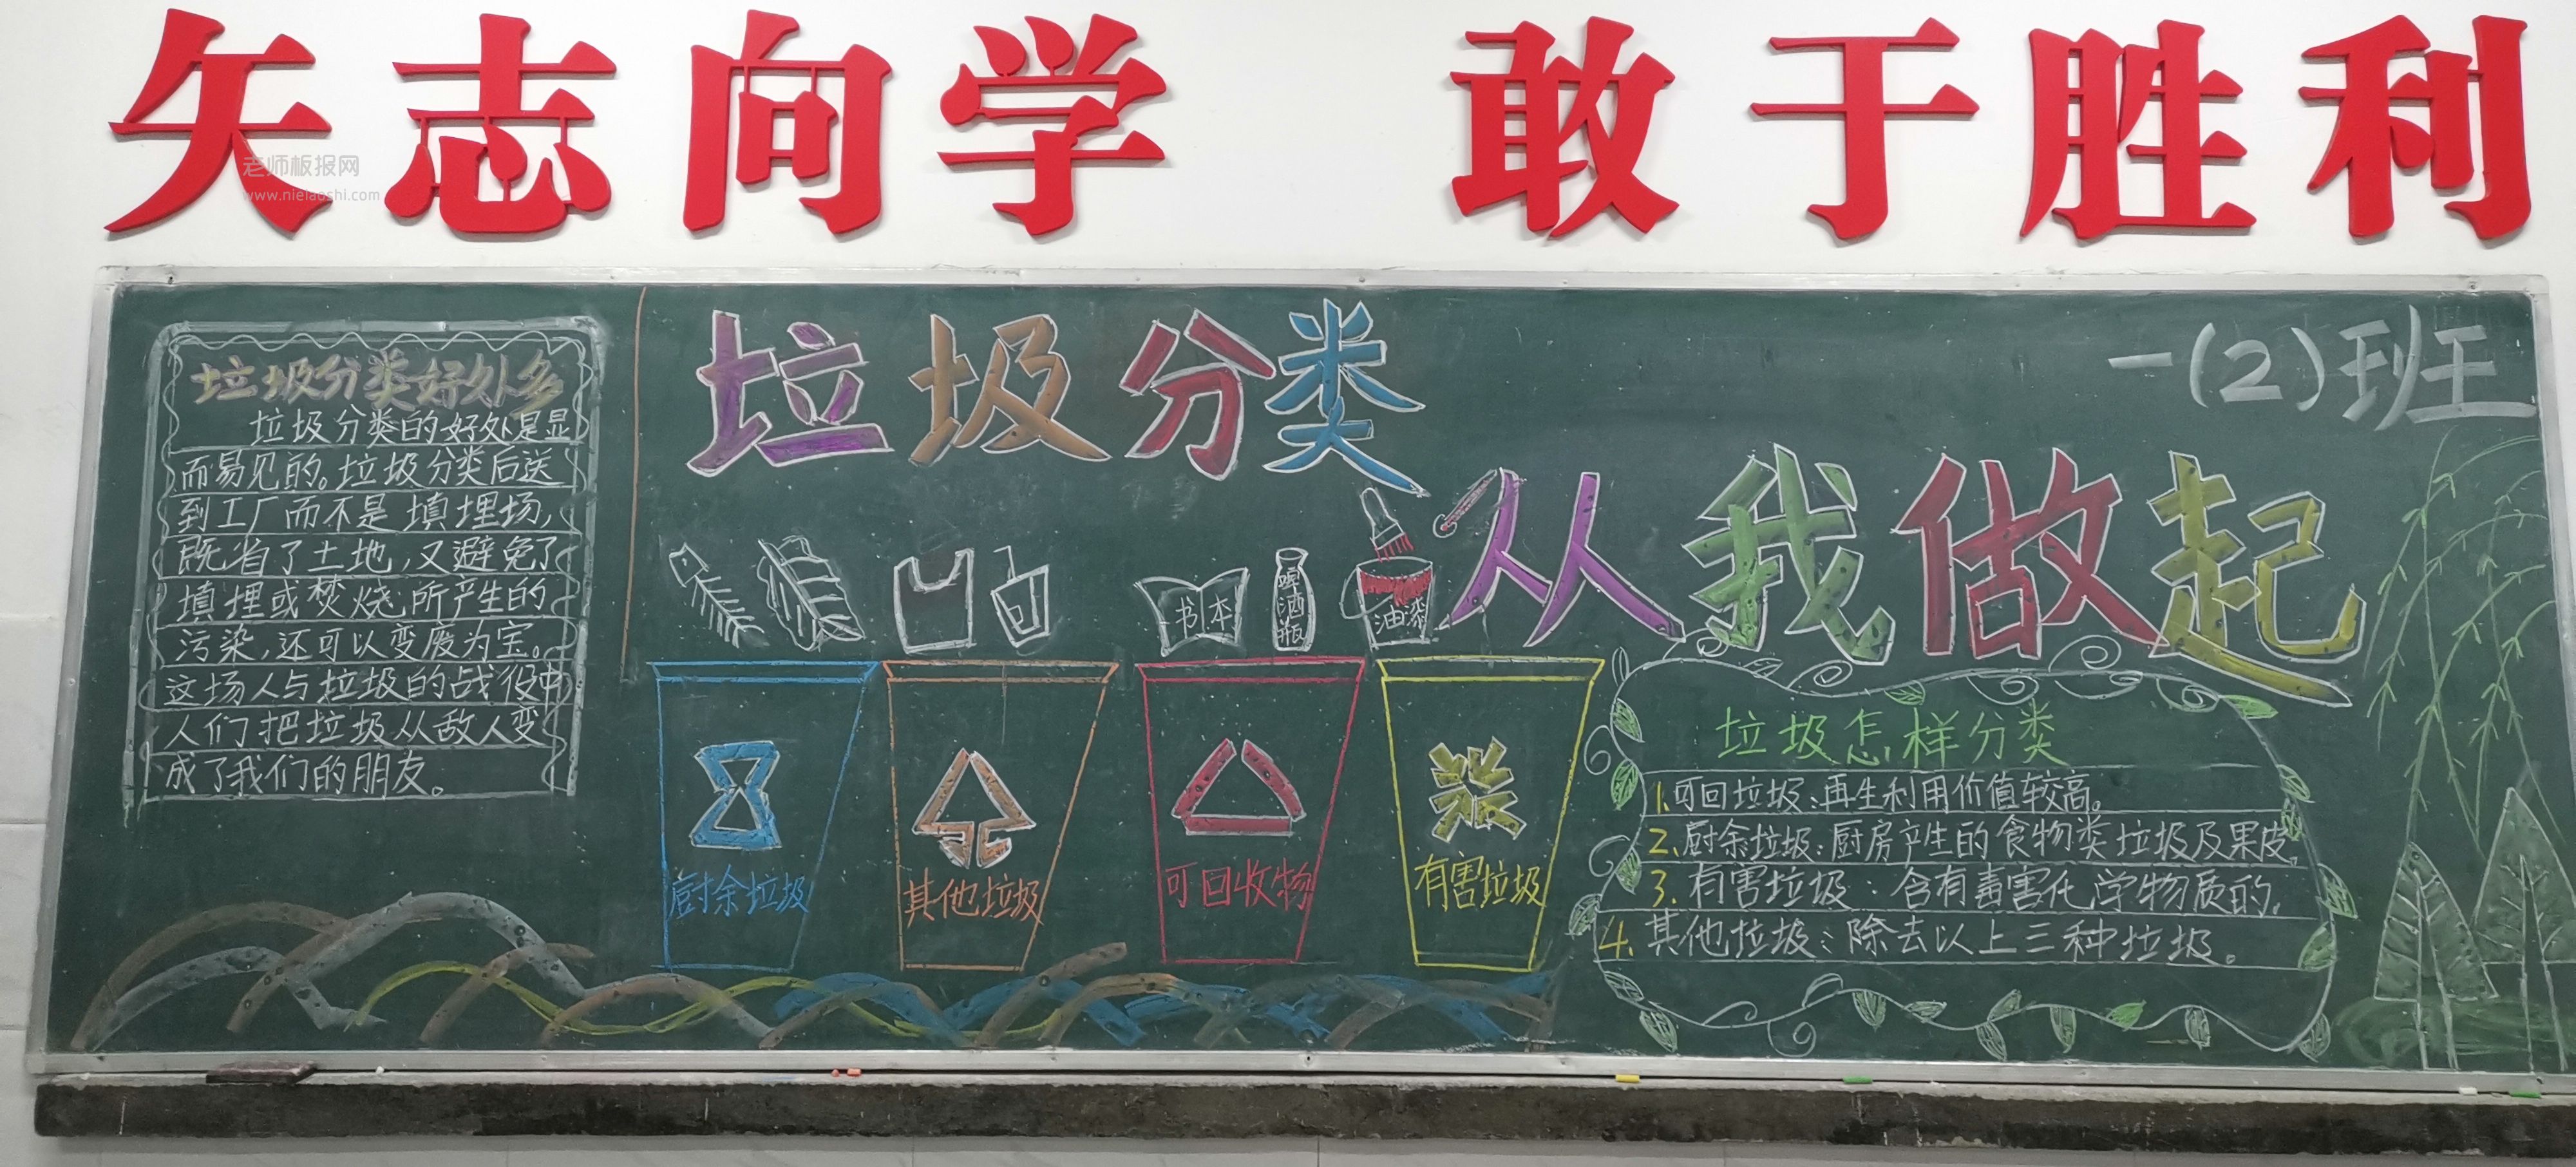 矢志向学 敢于胜利
老师板报网
www.nielaoshi.com
一(2)班
垃圾分类
从我做起
垃圾分类好处多
垃圾分类的好处是显
而易见的。垃圾分类后送
到工厂而不是填埋场,
既省了土地,又避免了
填埋或焚烧所产生的
污染,还可以变废为宝。
这场人与垃圾的战役中
人们把垃圾从敌人变
成了我们的朋友。
书本
啤酒瓶
油漆
厨余垃圾
其他垃圾
可回收物
有害垃圾
垃圾怎样分类
1.可回垃圾:再生利用价值较高。
2.厨余垃圾:厨房产生的食物类垃圾及果皮。
3.有害垃圾:含有毒害化学物质的。
4.其他垃圾:除去以上三种垃圾。